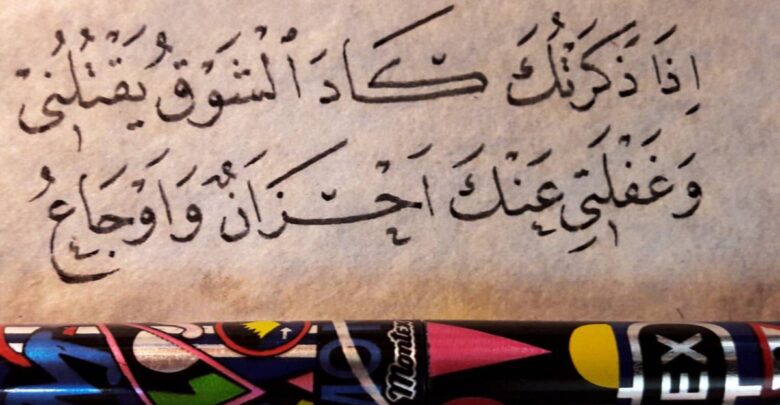 اِذَا ذَكَرْتُكَ كَادَ ٱلْشَوْقُ يَقْتُلُنِىْ
وَغَفْلَتِي عَنْكَ اَحْزَانٌ وَاَوْجَاعُ
Montex
EX